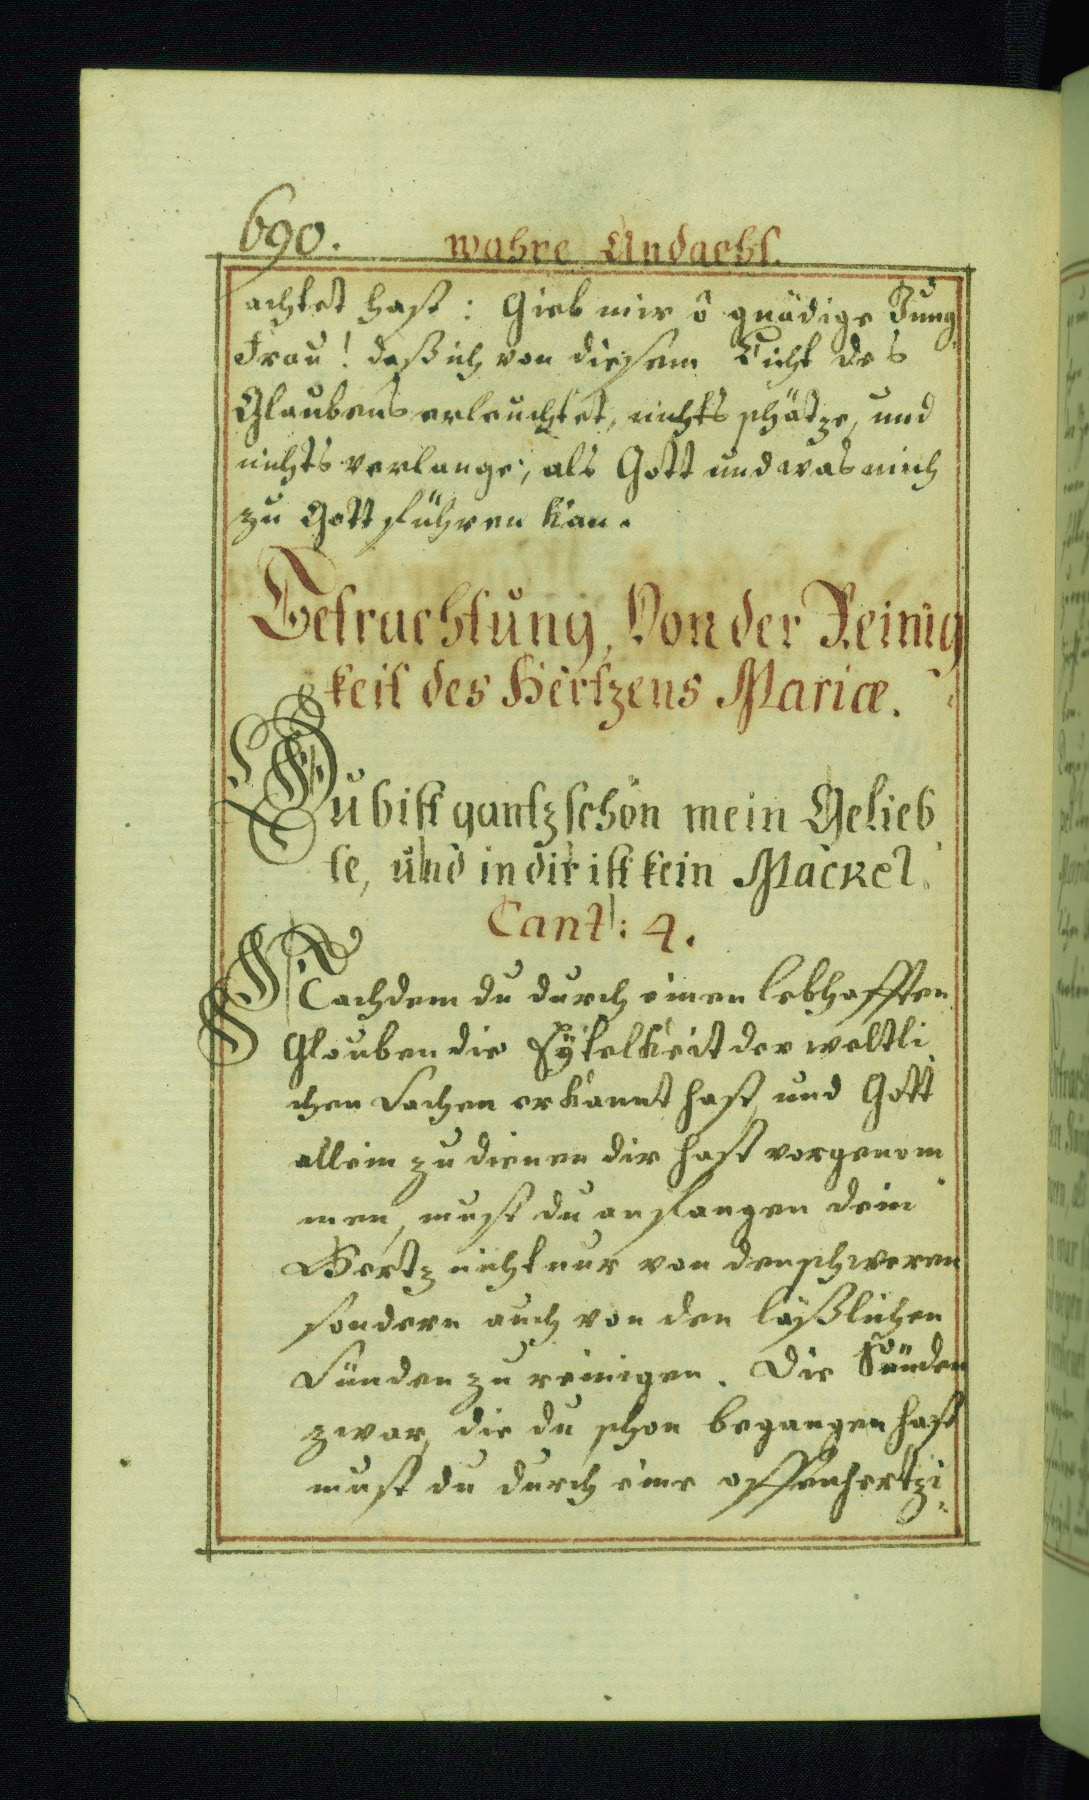 690.
wahre Andacht.
achtet hast: Gieb mir ô gnädige Jung
Frau! daß ich von diesem Licht des
Glaubens erleuchtet, nichts schätze, und
nichts verlange, als Gott und was mich
zu Gott führen kan.
Betrachtung, Von der Reinig
keit des Hertzens Mariæ.
Du bist gantz schön mein Gelieb
te, und in dir ist kein Mackel.
Cant: 4.
Nachdem du durch einen lebhafften
Glauben die Eÿtelkeit der weltli
chen Sachen erkannt hast, und Gott
allein zu dienen dir hast vorgenom
men, must du anfangen dein
Hertz nicht nur von den schweren
sondern auch von den läßlichen
Sünden zu reinigen. Die Sünden
zwar, die du schon begangen hast
must du durch eine offenhertzi-